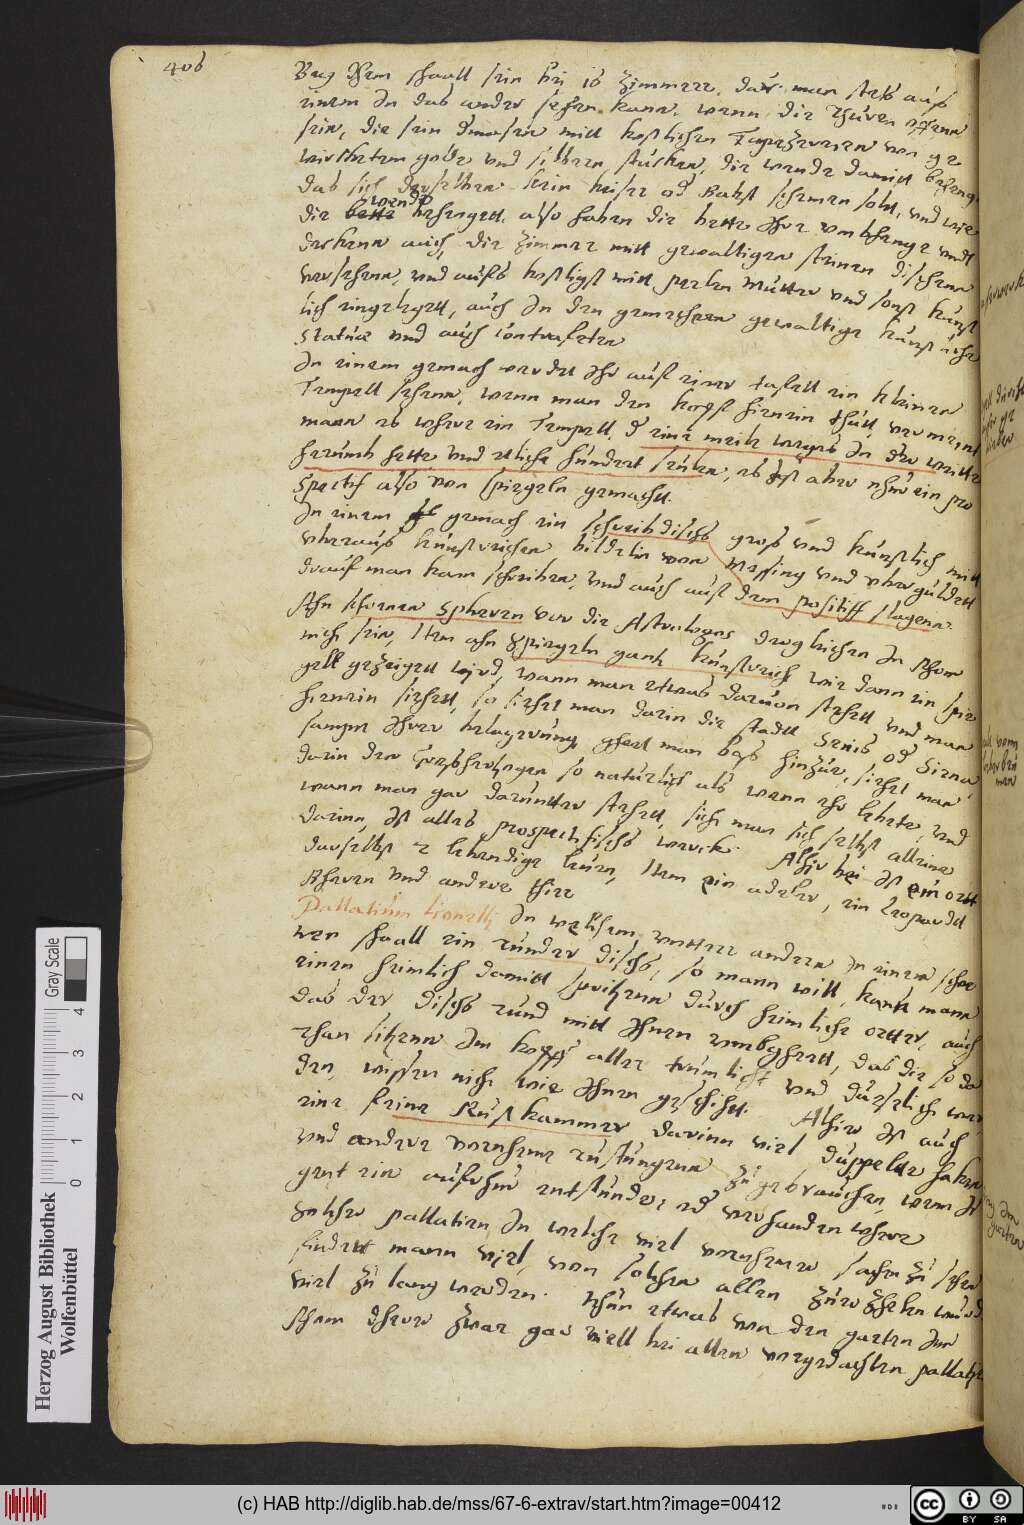 406
Bey Ihem schaall sein bei 18 Zimmerr, dar man stets aus
einem In das ander sehen kann, wenn die Thüren offenn
sein, die sein dmasen mitt kostlichen Tapezereien von ge
wirschetem golde und silberen stucken, die wende damitt behenge
das sich derselben kein keiser od Babst schemen solt, und wie
wende
die behengett, also haben die bette Ihre vorhenge undt
decken auch, die Zimmer mitt gewaltigen steinen dischenn
versehenn, und aufs kostligst mitt perlen Mutter und sonst künst
lich eingelegett, auch In den gemechern gewaltige künstliche
Statuæ und auch Conterfeten
In einem gemach werdet Ihr auf einer tafell ein kleinen
Tempell sehenn, wenn man den kopf hienein thutt, vermeint
mann es where ein Tempell, d eine meile weges In der weitte
herumb hette und etliche hundert seulen, es ist aber nhur ein pro
Spectif also von spiegeln gemacht.
In einem gemach ein schreibdisch gross und künstlich mitt
uberauss künstreichen bilderlin von Messing und ubergüldett
drauf man kann schreiben, und auch auf dem positiff slagenn.
Ahn schonen Spheren vor die Astrologos dergleichen In Rhom
nich sein, Item ahn Spiegeln gantz künstreich wie dann ein spie
gell gezeigett wird, wann man etwas daruon stehett und man
hienein siehett, so siehet man darin die stadtt Senis od Siena,
sampt Ihrer belagerung, ghet man bass hinzur, siehet man
darin den Gross hertzogen so naturlich als wenn ehr lebete, und
wann man gar darunter stehett, sich man sich selbst alleine
darinn, Ist alles prospectifisch werck. Alhier bei Ist ein ortt
darselbst 2 lebendige leuen, Item ein adeler, ein Leopardt
Rheren und andere thier
Pallatium Lionelli In welchem unter andern In einem schor
nen schaall ein runder disch, so mann will, kann mann
einen heimlich damitt spritzenn durch heimliche ortter, auch
das der disch rund mitt Ihnen umbghett, das die so da
rhan sitzenn Im kopf aller tumlicht und dürselich wer
den, wissen nich wie Ihnen geschicht. Alhier Ist auch
eine feine Rüstkammer darinn viel duppelte haken
und andere vornheme rustungenn zu gebrauchen, wenn Ir
gent ein aufrhur entstunde, od verhanden where
Welcher pallatien In welche viel vornheme sachen zu sehen
findett mann viel, von solchen allen zuerzhelen würde
viel zu lang werden. Nhun etwas von den garten Inn
Rhom dherer zwar gar viell bei allen vorgedachten pallatien
Gray Scale
Herzog August Bibliothek
Wolfenbüttel
0 1 2 3 4
(c) HAB http://diglib.hab.de/mss/67-6-extrav/start.htm?image=00412
CC BY SA